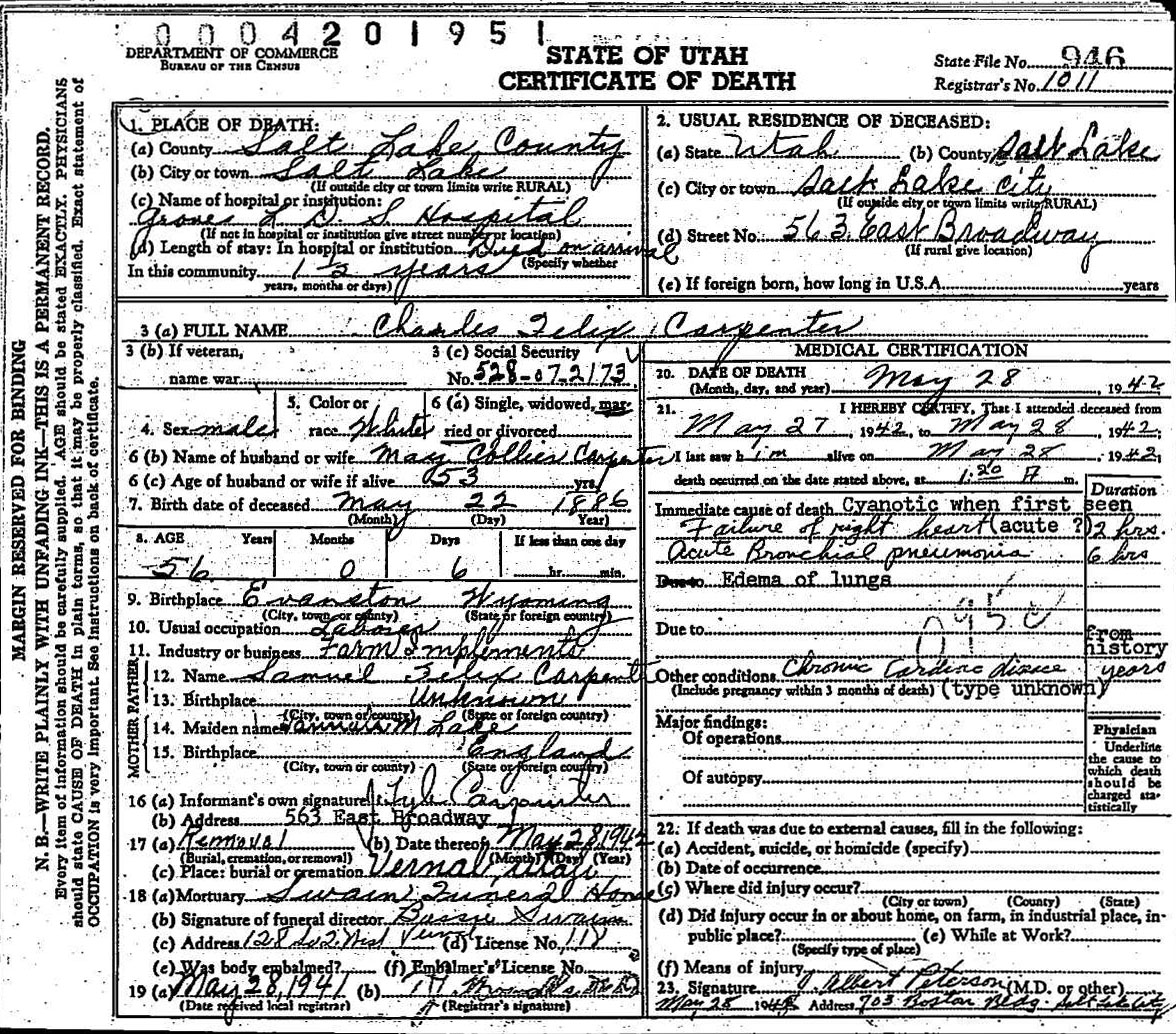 0004201951
DEPARTMENT OF COMMERCE
BUREAU OF THE CENSUS
STATE OF UTAH
CERTIFICATE OF DEATH
State File No. 946
Registrar's No. 1011
MARGIN RESERVED FOR BINDING
N. B.—WRITE PLAINLY WITH UNFADING INK—THIS IS A PERMANENT RECORD.
Every item of information should be carefully supplied. AGE should be stated EXACTLY. PHYSICIANS
should state CAUSE OF DEATH in plain terms, so that it may be properly classified. Exact statement of
OCCUPATION is very important. See instructions on back of certificate.
1. PLACE OF DEATH:
(a) County Salt Lake County
(b) City or town Salt Lake
(If outside city or town limits write RURAL)
(c) Name of hospital or institution:
Groves L. D. S Hospital
(If not in hospital or institution give street number or location)
(d) Length of stay: In hospital or institution Died on arrival
(Specify whether
In this community years
years, months or days)
2. USUAL RESIDENCE OF DECEASED:
(a) State Utah (b) County Salt Lake
(c) City or town Salt Lake City
(If outside city or town limits write RURAL)
(d) Street No. 563 East Broadway
(If rural give location)
(e) If foreign born, how long in U.S.A. years
3 (a) FULL NAME Charles Felix Carpenter
3 (b) If veteran,
name war
3 (c) Social Security
No. 528-07-2173
4. Sex male
5. Color or
race White
6 (a) Single, widowed, mar-
ried or divorced
6 (b) Name of husband or wife Mary Collier Carpenter
6 (c) Age of husband or wife if alive 53 yrs.
7. Birth date of deceased May 22 1886
(Month) (Day) Year)
8. AGE Years Months Days If less than one day
56 0 6 hr. min.
9. Birthplace Evanston Wyoming
(City, town or county) (State or foreign country)
10. Usual occupation Laborer
11. Industry or business Farm Implements
FATHER
12. Name Samuel Felix Carpent
13. Birthplace Unknown
(City, town or county) (State or foreign country)
MOTHER
14. Maiden name M Lake
15. Birthplace England
(City, town or county) (State or foreign country)
16 (a) Informant's own signature Lyle Carpenter
(b) Address 563 East Broadway
17 (a) Removal (b) Date thereof May 28, 1942
(Burial, cremation, or removal) (Month) (Day) (Year)
(c) Place: burial or cremation Vernal, Utah
18 (a) Mortuary Swain Funeral Home
(b) Signature of funeral director Swain
(c) Address 128 So 2 West Vernal (d) License No. 118
(e) Was body embalmed? (f) Embalmer's License No.
19 (a) May 28, 1941 (b)
(Date received local registrar) (Registrar's signature)
MEDICAL CERTIFICATION
20. DATE OF DEATH
(Month, day, and year) May 28 1942
21. I HEREBY CERTIFY, That I attended deceased from
May 27, 1942, to May 28, 1942;
I last saw him alive on May 28, 1942;
death occurred on the date stated above, at 1:20 A m.
Duration
Immediate cause of death Cyanotic when first seen
Failure of right heart (acute ?) 2 hrs.
Acute Bronchial pneumonia 6 hrs
Due to Edema of lungs
Due to
from
history
Other conditions Chronic Cardiac disease years
(Include pregnancy within 3 months of death) (type unknown)
Major findings:
Of operations
Of autopsy
Physician
Underline
the cause to
which death
should be
charged sta-
tistically
22. If death was due to external causes, fill in the following:
(a) Accident, suicide, or homicide (specify)
(b) Date of occurrence
(c) Where did injury occur?
(City or town) (County) (State)
(d) Did injury occur in or about home, on farm, in industrial place, in
public place? (e) While at Work?
(Specify type of place)
(f) Means of injury
23. Signature J. Albert Peterson (M.D. or other)
May 28 1942 Address 703 Boston Bldg. Salt Lake City